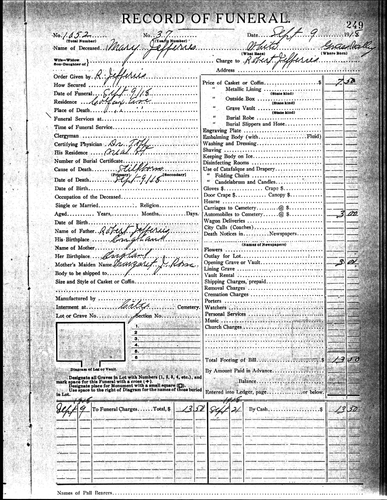 RECORD OF FUNERAL.
249
No. 1652 No. 37 Date, Sept 9 1918
(Total Number) (Yearly Number)
Name of Deceased, Mary Jefferis White
(Race) (Where Born)
Widow
Wife
Son or Daughter of
Charge to Robert Jefferies
Address
Order Given by R. Jefferis
How Secured
Date of Funeral, Sept 9/18
Residence
Place of Death,
Funeral Services at
Time of Funeral Service
Clergyman
Certifying Physician
His Residence
Number of Burial Certificate
Cause of Death, Stillborn
(Primary) (Secondary)
Date of Death, Sept-9/18
Date of Birth,
Occupation of the Deceased
Single or Married, Religion,
Aged, Years, Months, Days.
Date of Birth,
Name of Father, Robert Jefferis
His Birthplace England
Name of Mother,
Her Birthplace England
Mother's Maiden Name Margaret J. Rose
Body to be shipped to
Size and Style of Casket or Coffin
Manufactured by
Interment at City Cemetery.
Lot or Grave No. Section No.
Diagram of Lot or Vault
Designate all Graves in Lot with Numbers (1, 2, 3, 4, etc.), and
mark space for this Funeral with a cross (+).
Designate place for Monument with a small square (□).
Use space to the right of Diagram for names of those buried
in Lot.
Price of Casket or Coffin $ 7.50
" Metallic Lining
(State kind)
" Outside Box
(State kind)
" Grave Vault
(State kind)
" Burial Robe
" Burial Slippers and Hose
Engraving Plate
Embalming Body (with Fluid)
Washing and Dressing
Shaving
Keeping Body on Ice
Disinfecting Rooms
Use of Catafalque and Drapery
" Folding Chairs
" Candelabrum and Candles
Gloves $ Crape $
Door Crape $
Hearse
Carriages to Cemetery @ $
Automobiles to Cemetery @ $ 3.00
Wagon Deliveries
City Calls (Coaches)
Death Notices in Newspapers
(Names of Newspapers)
Flowers
Outlay for Lot
Opening Grave or Vault 3.00
Lining Grave
Vault Rental
Shipping Charges, prepaid
Removal Charges
Cremation Charges
Porters
Watchers
Personal Services
Music
Church Charges
Total Footing of Bill $ 13.50
By Amount Paid in Advance
Balance
Entered into Ledger, page or below.
1918 Sept 9 To Funeral Charges Total, $ 13 50 1918 Sept 21 By Cash $ 13.50
Names of Pall Bearers